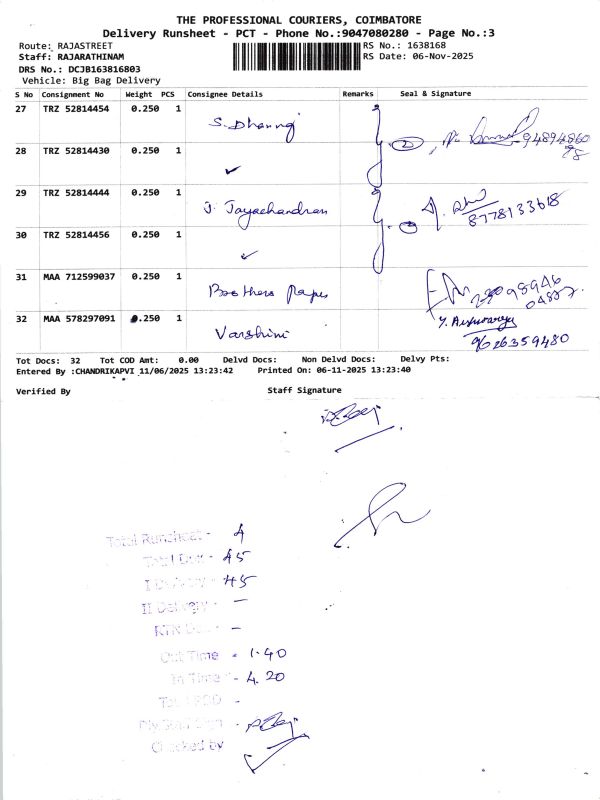 THE PROFESSIONAL COURIERS, COIMBATORE
Delivery Runsheet - PCT - Phone No.:9047080280 - Page No.:3
Route: RAJASTREET RS No.: 1638168
Staff: RAJARATHINAM RS Date: 06-Nov-2025
DRS No.: DCJB163816803
Vehicle: Big Bag Delivery
S No Consignment No Weight PCS Consignee Details Remarks Seal & Signature
27 TRZ 52814454 0.250 1
S. Dhanraj
28 TRZ 52814430 0.250 1
2
29 TRZ 52814444 0.250 1
J. Jayachandran
8778133618
30 TRZ 52814456 0.250 1
31 MAA 712599037 0.250 1
Brothers
32 MAA 578297091 0.250 1
Varshini
9626359480
Tot Docs: 32 Tot COD Amt: 0.00 Delvd Docs: Non Delvd Docs: Delvy Pts:
Entered By :CHANDRIKAPVI 11/06/2025 13:23:42 Printed On: 06-11-2025 13:23:40
Verified By Staff Signature
Total Runsheet - 4
45
I Delivery - 45
II Delivery - –
–
Out Time - 1.40
In Time - 4.20
Checked by